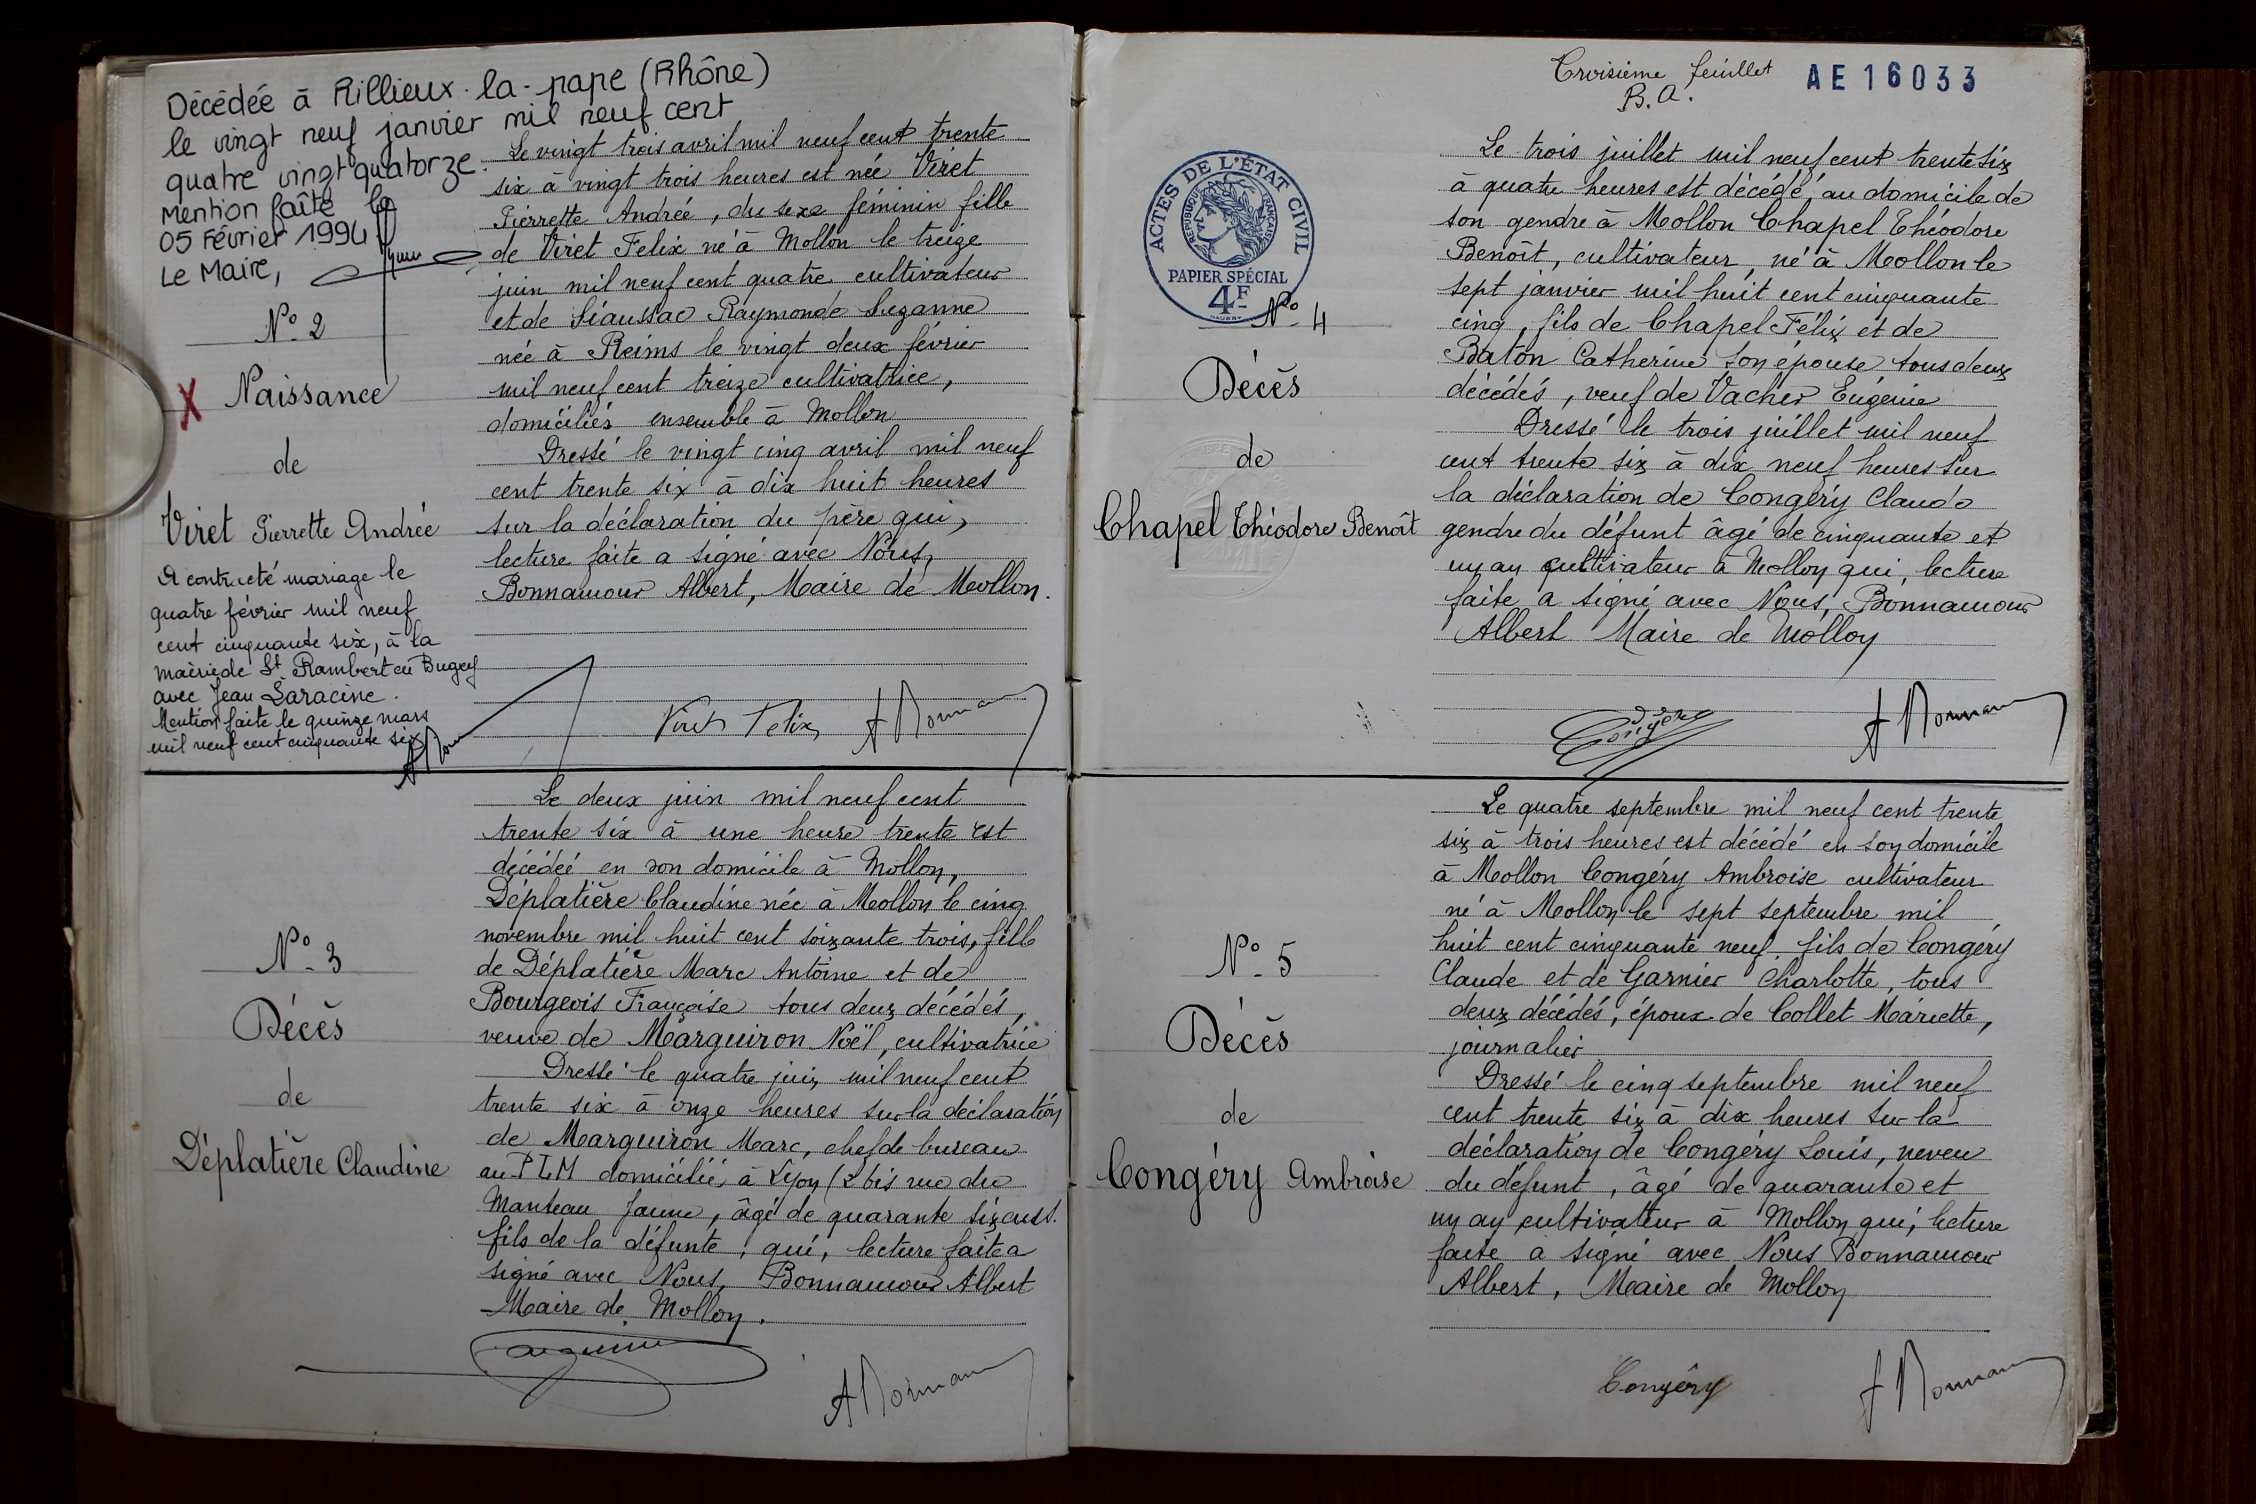 Décédée à Rillieux-la-pape (Rhône)
le vingt neuf janvier mil neuf cent
quatre vingt quatorze.
Mention faite le
05 Février 1994
Le Maire,
N° 2
Naissance
de
Viret Pierrette Andrée
A contracté mariage le
quatre février mil neuf
cent cinquante six, à la
mairie de St Rambert en Bugey
avec Jean Saracine.
Mention faite le quinze mars
mil neuf cent cinquante six
Le vingt trois avril mil neuf cent trente
six à vingt trois heures est née Viret
Pierrette Andrée, du sexe féminin fille
de Viret Felix né à Mollon le treize
juin mil neuf cent quatre cultivateur
et de Siaussac Raymonde Suzanne
née à Reims le vingt deux février
mil neuf cent treize cultivatrice,
domiciliés ensemble à Mollon
Dressé le vingt cinq avril mil neuf
cent trente six à dix huit heures
sur la déclaration du père qui,
lecture faite a signé avec Nous,
Bonnamour Albert, Maire de Mollon.
Viret Felix
N° 3
Décès
de
Déplatière Claudine
Le deux juin mil neuf cent
trente six à une heure trente est
décédée en son domicile à Mollon,
Déplatière Claudine née à Mollon le cinq
novembre mil huit cent soixante trois, fille
de Déplatière Marc Antoine et de
Bourgeois Françoise tous deux décédés,
veuve de Marguiron Noël, cultivatrice
Dressé le quatre juin mil neuf cent
trente six à onze heures sur la déclaration
de Marguiron Marc, chef de bureau
au P L M domicilié à Lyon (2 bis rue du
Manteau Jaune, âgé de quarante six ans.
fils de la défunte, qui, lecture faite a
signé avec Nous, Bonnamour Albert
Maire de Mollon.
Troisième feuillet
B. A.
AE 16033
ACTES DE L'ÉTAT CIVIL
RÉPUBLIQUE FRANÇAISE
PAPIER SPÉCIAL
4F
N° 4
Décès
de
Chapel Théodore Benoît
Le trois juillet mil neuf cent trente six
à quatre heures est décédé au domicile de
son gendre à Mollon Chapel Théodore
Benoît, cultivateur, né à Mollon le
sept janvier mil huit cent cinquante
cinq, fils de Chapel Félix et de
Baton Catherine son épouse tous deux
décédés, veuf de Vacher Eugénie
Dressé le trois juillet mil neuf
cent trente six à dix neuf heures sur
la déclaration de Congéry Claude
gendre du défunt âgé de cinquante et
un an cultivateur à Mollon qui, lecture
faite a signé avec Nous, Bonnamour
Albert Maire de Mollon
Congéry
N° 5
Décès
de
Congéry Ambroise
Le quatre septembre mil neuf cent trente
six à trois heures est décédé en son domicile
à Mollon Congéry Ambroise cultivateur
né à Mollon le sept septembre mil
huit cent cinquante neuf, fils de Congéry
Claude et de Garnier Charlotte, tous
deux décédés, époux de Collet Mariette,
journalier
Dressé le cinq septembre mil neuf
cent trente six à dix heures sur la
déclaration de Congéry Louis, neveu
du défunt, âgé de quarante et
un an cultivateur à Mollon qui, lecture
faite a signé avec Nous Bonnamour
Albert, Maire de Mollon
Congéry